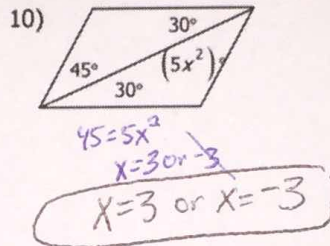 10)
30°
45°
(5x²)°
30°
45=5x²
x=3 or -3
x=3 or x=-3